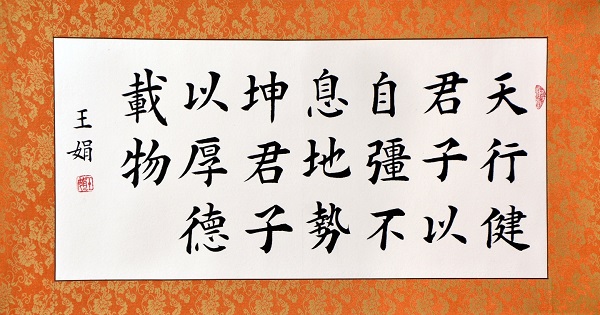 天行健
君子以
自彊不
息地勢
坤君子
以厚德
載物
王娟